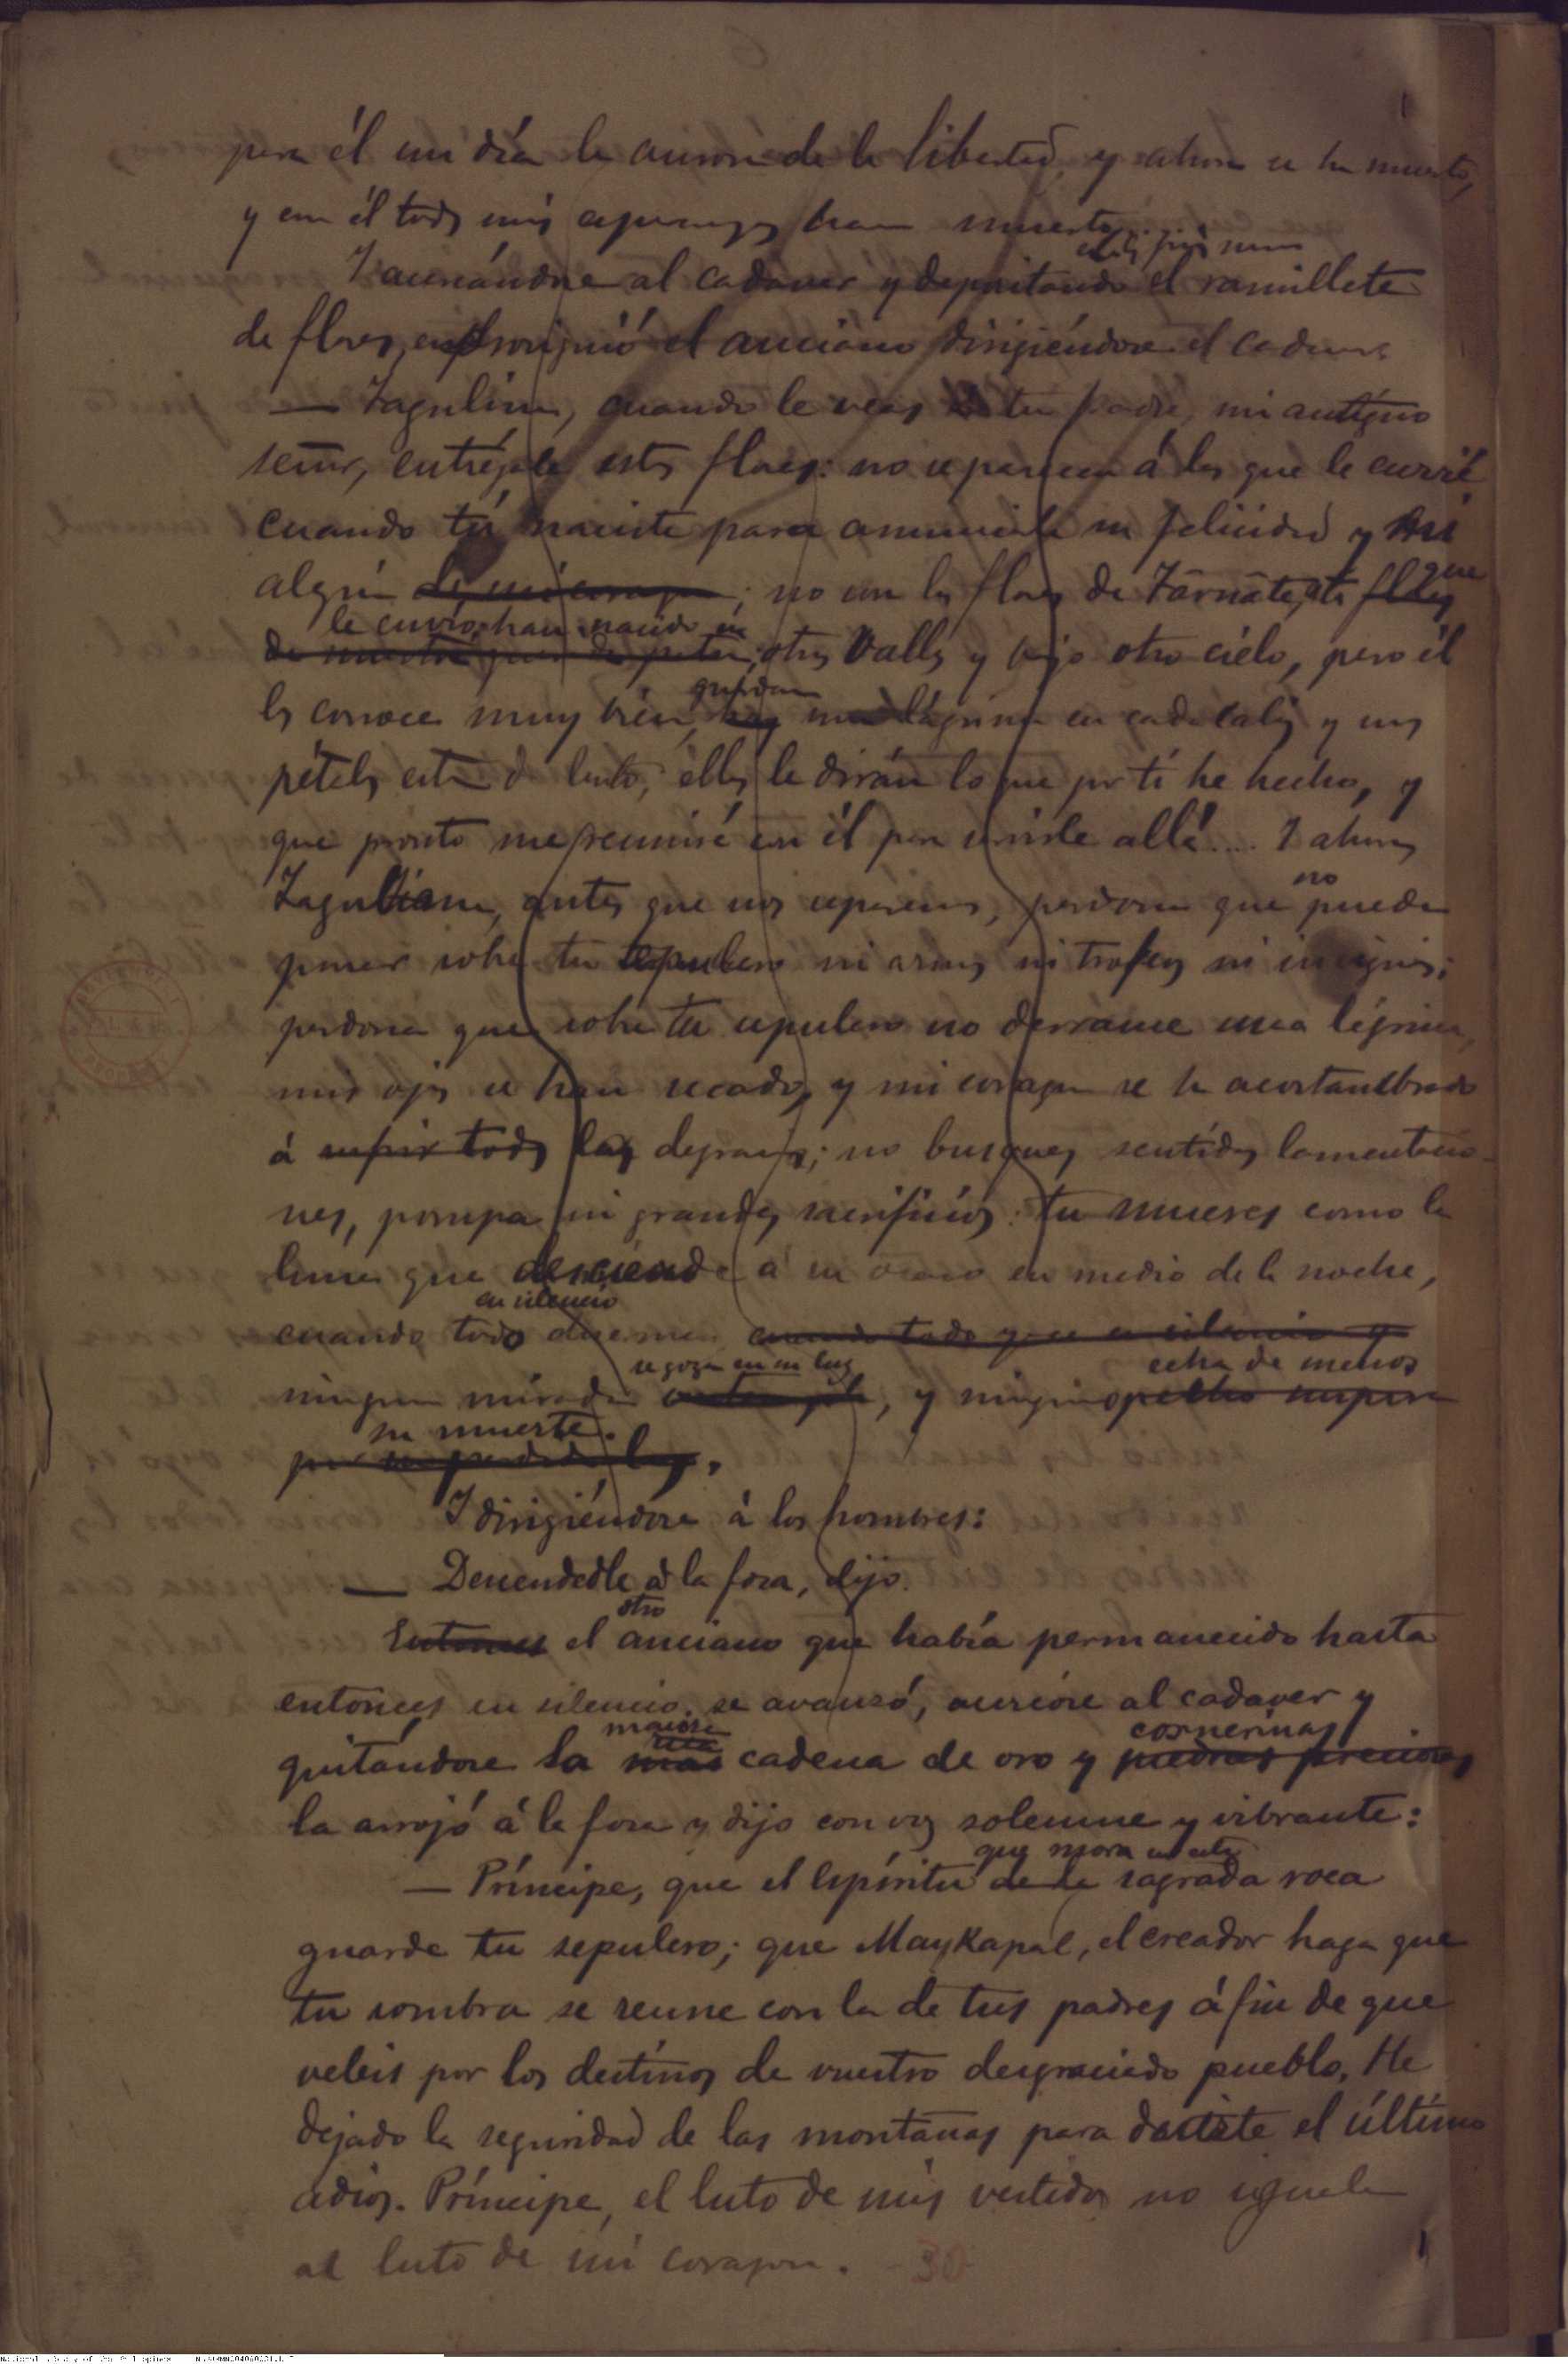 para él un día la aurora de la libertad, y ahora se ha muerto,
y con él todas mis esperanzas han muerto
sus piés
Y acercándose al cadaver y depositando el ramillete
de flores, prosiguió el anciano dirigiéndose al cadaver
— Tagulima, cuando le veas á tu padre, mi antiguo
señor, entrégale estas flores: no se parecen á las que le envié
cuando tú naciste para anunciarle su felicidad y mi
alegría ; no son las flores de Tárnáte, que
le envío han nacido en
otros valles y bajo otro cielo, pero él
guardan
las conoce muy bien, una lágrima en cada caliz y sus
pétalos están de luto; ellas le dirán lo que por tí he hecho, y
que pronto me reuniré con él para servirle allá.... Y ahora,
no
Tagulima, antes que nos separemos, perdona que pueda
poner sobre tu sepulcro ni armas ni trofeos ni insignias;
perdona que sobre tu sepulcro no derrame una lágrima,
mis ojos se han secado, y mi corazon se ha acostumbrado
á sufrir todas las desgracias; no busques sentidas lamentacio-
nes, pompa ni grandes sacrificios: tu mueres como la
luna que desciende á su ocaso en medio de la noche,
en silencio
cuando todo duerme cuando todo yace en silencio y
se goza en su luz echa de menos
ninguna mirada , y ninguno pecho suspira
su muerte.
por su perdida luz.
Y dirigiéndose á los hombres:
— Descendedle á la fosa, dijo.
otro
Entonces el anciano que había permanecido hasta
entonces en silencio, se avanzó, acercóse al cadaver y
maciza cornerinas
quitándose la cadena de oro y piedras preciosas
la arrojó á la fosa y dijo con voz solemne y vibrante:
que mora en esta
— Príncipe, que el Espíritu de la sagrada roca
guarde tu sepulcro; que MayKapal, el creador haga que
tu sombra se reune con la de tus padres á fin de que
veleis por los destinos de vuestro desgraciado pueblo. He
dejado la seguridad de las montañas para darte el último
adios. Príncipe, el luto de mis vestidos no iguala
al luto de mi corazon. - 30